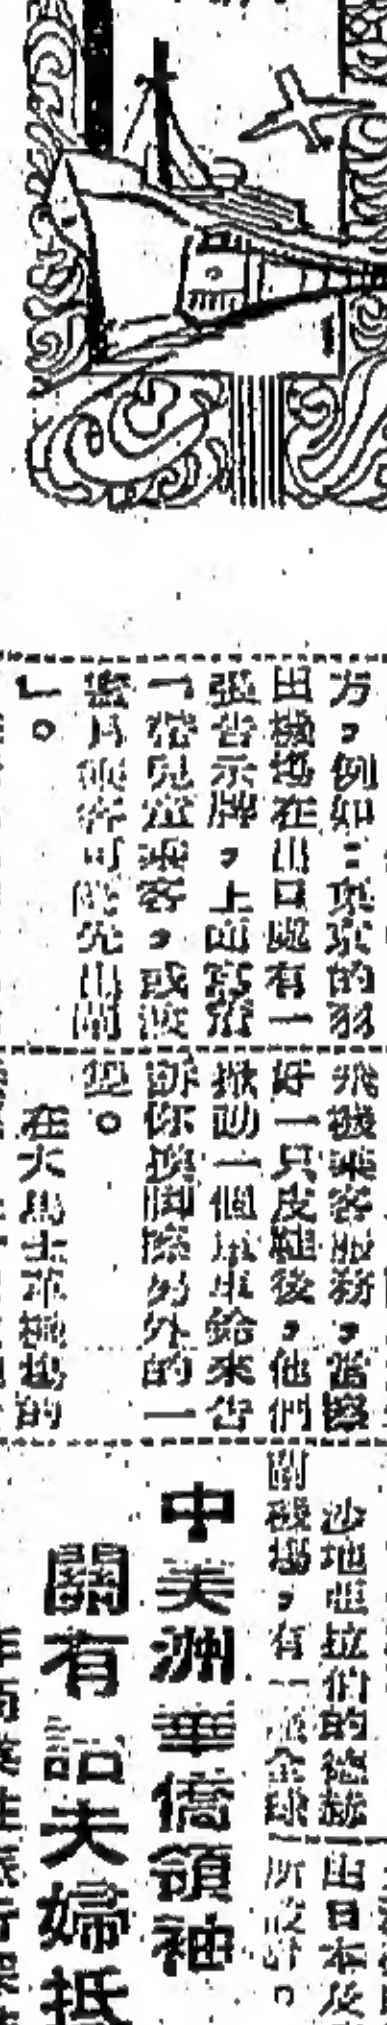 方，例如：東京的羽
出機場在出口處有一
張告示牌，上面寫着
「帶兒童乘客，或渡
蜜月乘客可能先出閘
」。
飛機乘客服務，當擦
好一只皮鞋後，他們
揿動一個單車鈴來告
訴你換脚擦另外的一
隻。
在大馬士革機場的
沙地亞拉伯的
機場，有一座全球
出日本
所設計。
中美洲華僑領袖
關有 夫婦抵